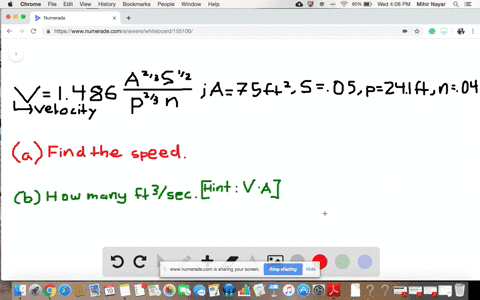 Chrome File Edit View History Bookmarks People Window Help
80% Wed 4:08 PM Mihir Nayar
Numerade
https://www.numerade.com/answers/whiteboard/155106/
V = 1.486 A^2/3 S^1/2 / p^2/3 n ; A=75ft², S=.05, p=24.1ft, n=.04
velocity
(a) Find the speed.
(b) How many ft³/sec. [Hint: V·A]
www.numerade.com is sharing your screen. Stop sharing Hide